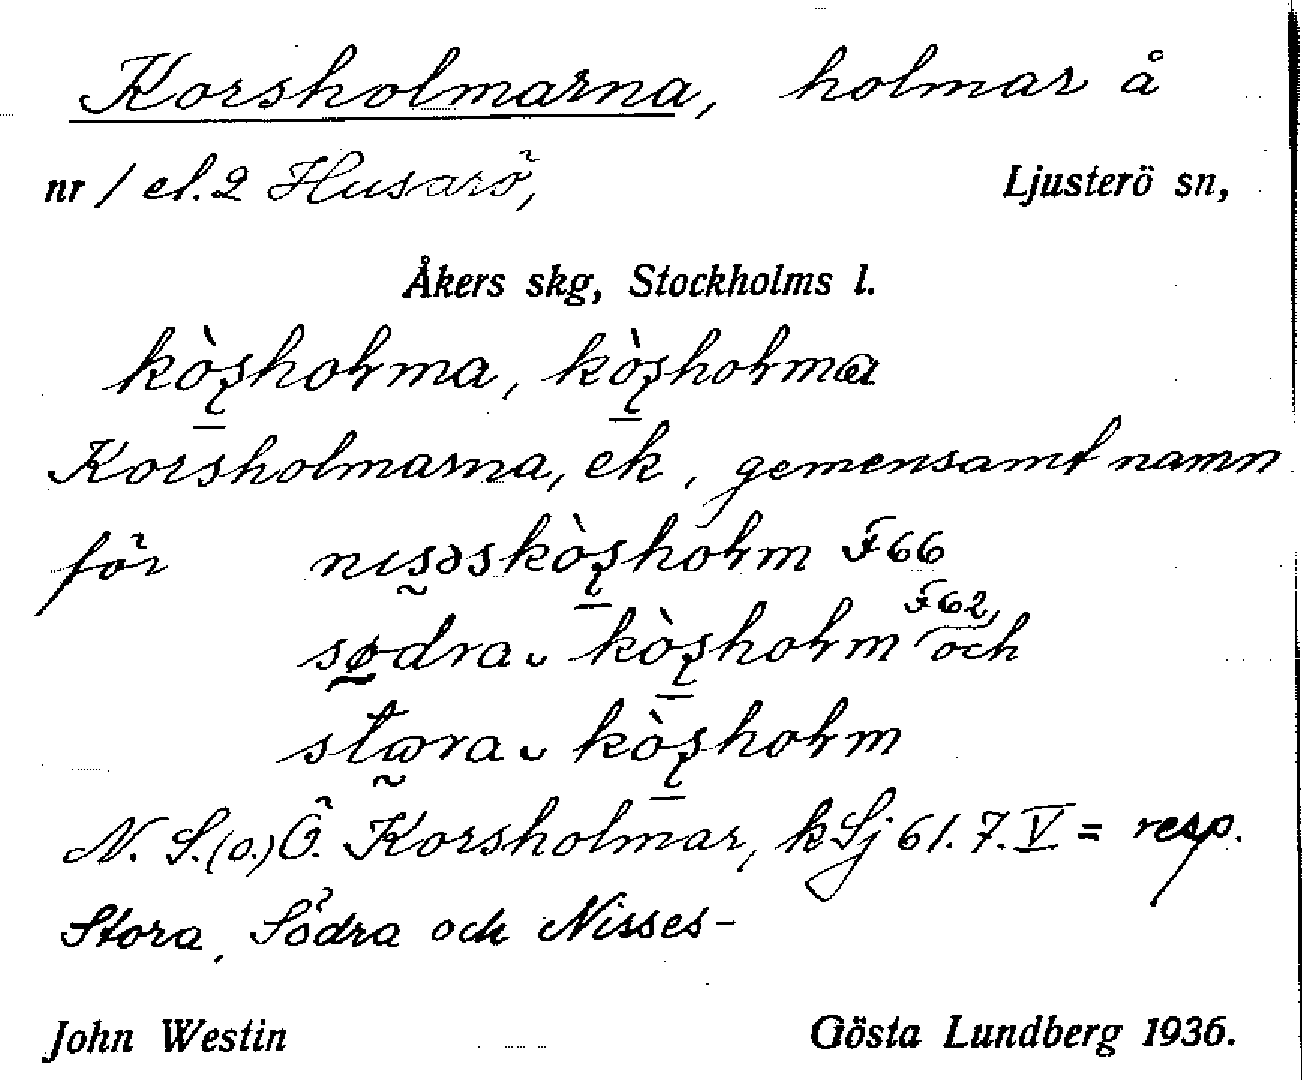 Korsholmarna, holmar å
nr 1 el. 2 Husarö, Ljusterö sn,
Åkers skg, Stockholms l.
kòʂhoɫma, kòʂhoɫma
Korsholmarna, ek, gemensamt namn
för nısəskòʂhoɫm F66
F62,
sødra ᴗ kòʂhoɫm och
stωra ᴗ kòʂhoɫm
N. S. (o.) Ö. Korsholmar, kSj 61. 7. V = resp.
Stora, Södra och Nisses-
John Westin Gösta Lundberg 1936.